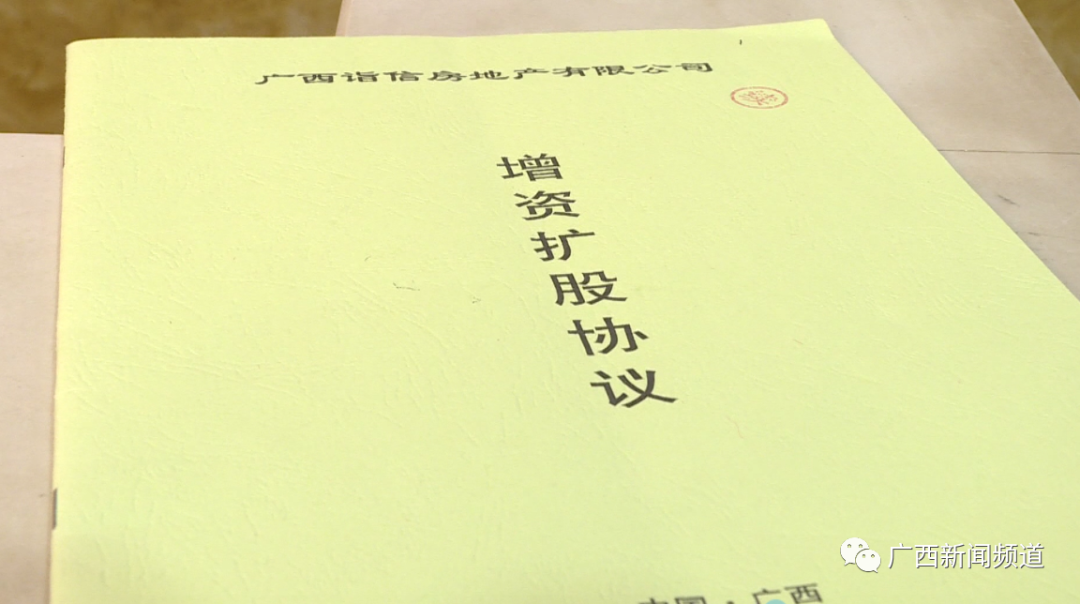 广西诣信房地产有限公司
增资扩股协议
中国·广西
广西新闻频道